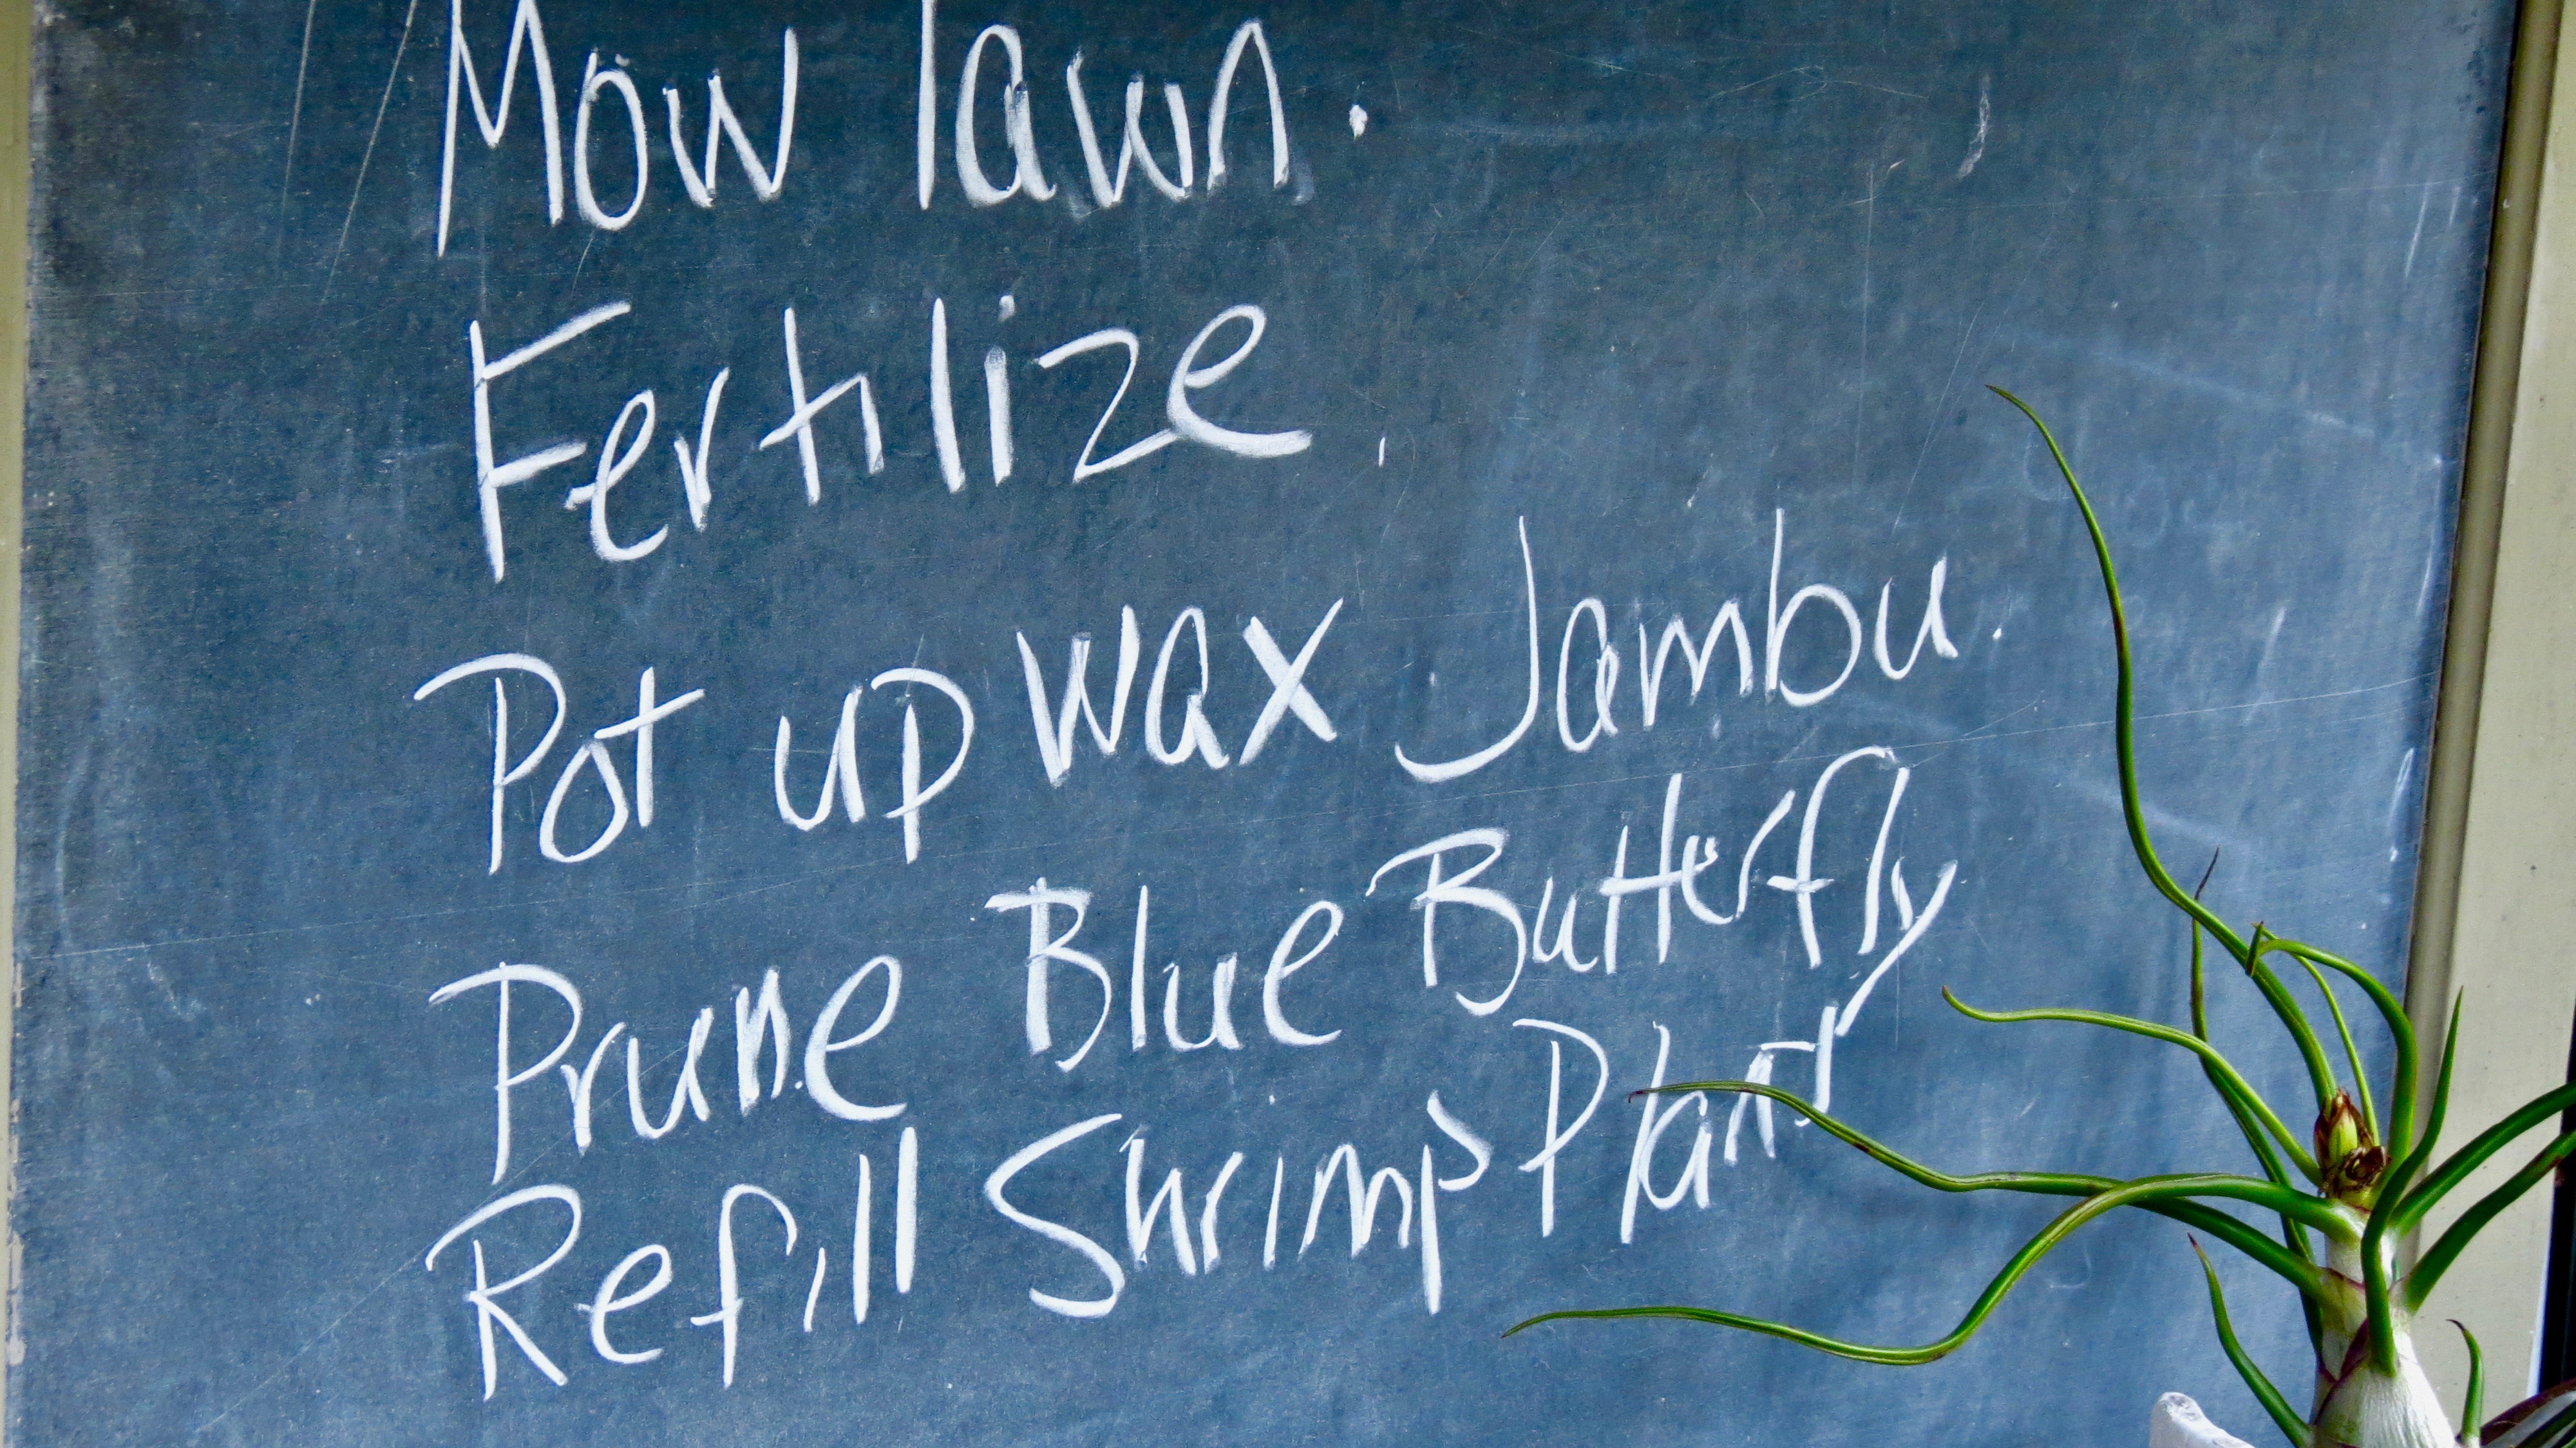 Mow lawn.
Fertilize.
Pot up wax Jambu.
Prune Blue Butterfly
Refill Shrimp Plant